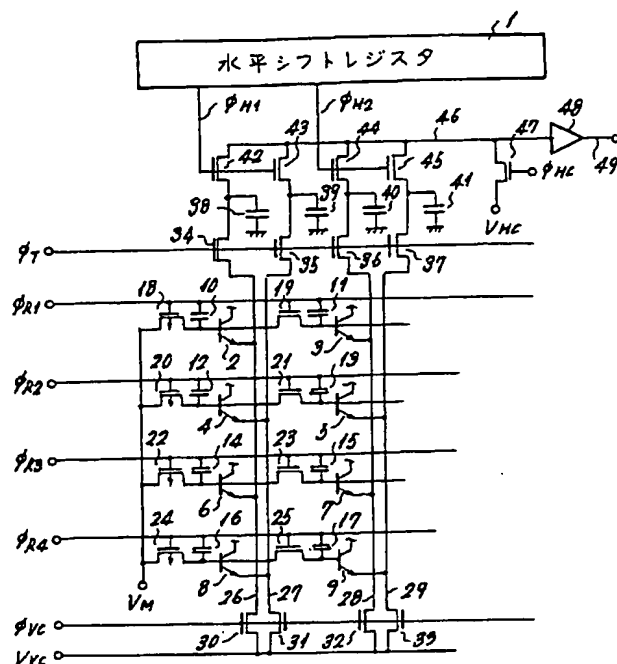 1
水平シフトレジスタ
φH1
φH2
46
48
47
49
φHC
VHC
42
43
44
45
38
39
40
41
φT
34
35
36
37
φR1
18
10
19
11
2
3
φR2
20
12
21
13
4
5
φR3
22
14
23
15
6
7
φR4
24
16
25
17
8
9
VM
26
27
28
29
φVC
30
31
32
33
VVC